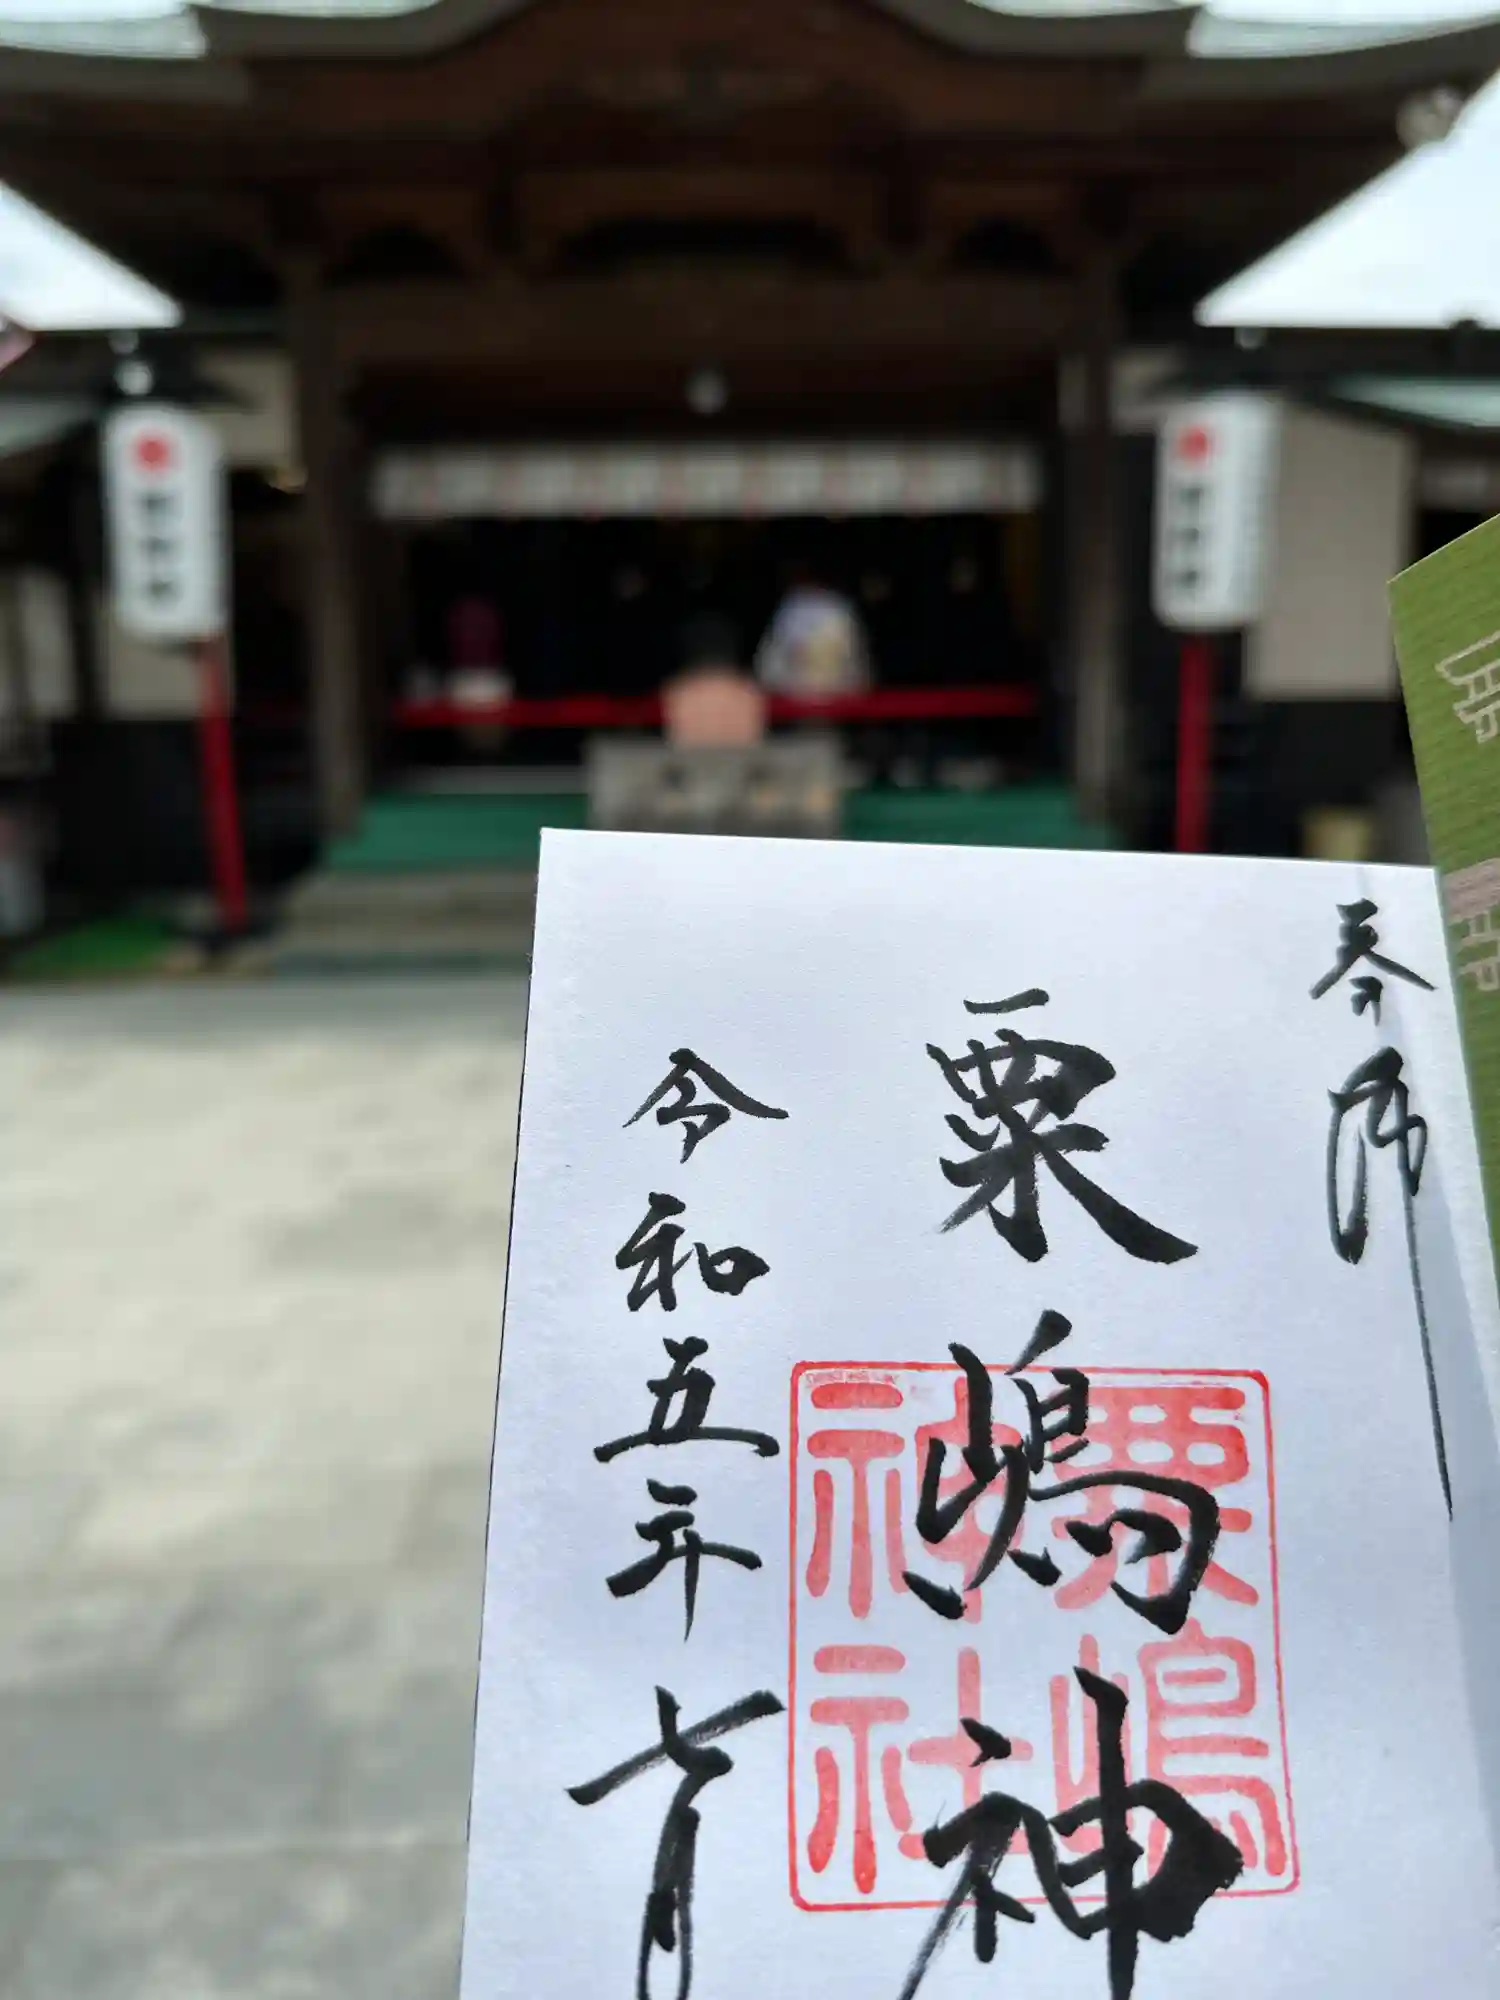 奉拝
粟嶋神
令和五年七月
粟嶋
神社